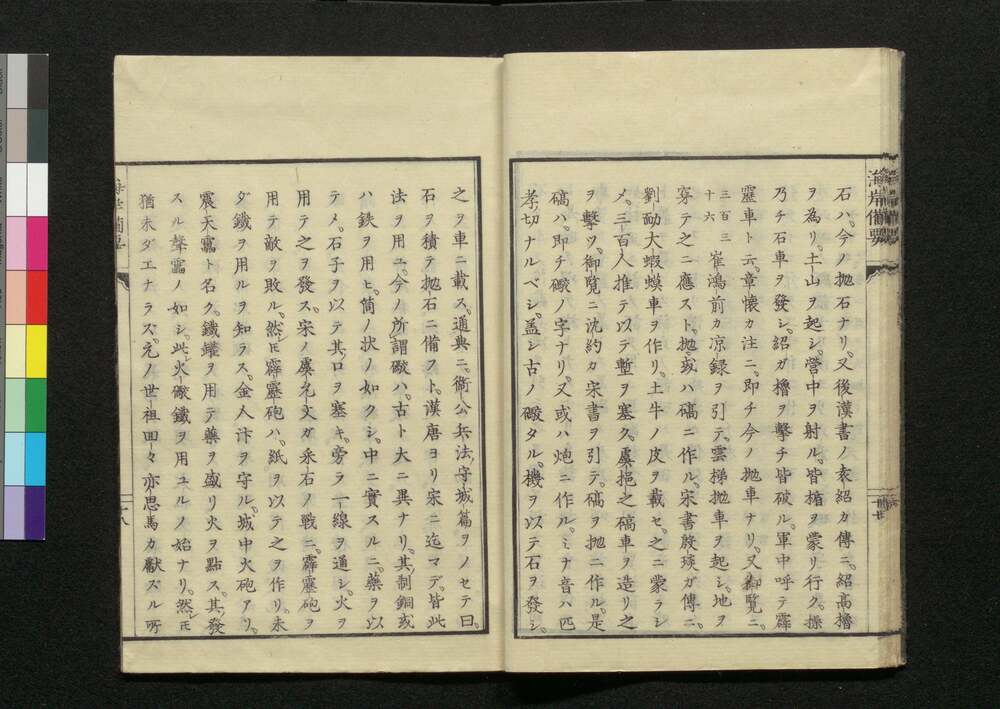 海岸備要
石ハ。今ノ抛石ナリ。又後漢書ノ袁紹カ傳ニ。紹高櫓
ヲ為リ。土山ヲ起シ。營中ヲ射ル。皆楯ヲ蒙リ行ク。操
乃チ石車ヲ發シ。紹ガ櫓ヲ擊チ皆破ル。軍中呼テ霹
靂車ト云。章懐カ注ニ。即チ今ノ抛車ナリ。又御覽ニ。
三百三十六 崔鴻前カ凉録ヲ引テ。雲梯抛車ヲ起シ。地ヲ
穿テ之ニ應スト。抛或ハ礄ニ作ル。宋書殷琰ガ傳ニ。
劉勔大蝦蟆車ヲ作リ。土牛ノ皮ヲ載セ。之ニ蒙ラシ
メ。三百人推テ以テ塹ヲ塞ク。虞挹之礄車ヲ造リ之
ヲ擊ツ。御覽ニ沈約カ宋書ヲ引テ。礄ヲ抛ニ作ル。是
礄ハ。即チ礮ノ字ナリ。又或ハ炮ニ作ル。ミナ音ハ匹
孝切ナルベシ。蓋シ古ノ礮タル。機ヲ以テ石ヲ發シ。
之ヲ車ニ載ス。通典ニ。衞公兵法守城篇ヲノセテ曰。
石ヲ積テ抛石ニ備フト。漢唐ヨリ宋ニ迄マデ。皆此
法ヲ用ユ。今ノ所謂礮ハ。古ト大ニ異ナリ。其制銅或
ハ鉄ヲ用ヒ。筒ノ状ノ如クシ。中ニ實スルニ。藥ヲ以
テメ。石子ヲ以テ其口ヲ塞キ。旁ラ一線ヲ通シ。火ヲ
用テ之ヲ發ス。宋ノ虞允文ガ采石ノ戰ニ。霹靂砲ヲ
用テ敵ヲ敗ル。然シ𪜈霹靂砲ハ。紙ヲ以テ之ヲ作リ。未
ダ鐵ヲ用ルヲ知ラス。金人汴ヲ守ル。城中火砲アリ。
震天雷ト名ク。鐵罐ヲ用テ藥ヲ盛リ火ヲ點ス。其發
スル聲雷ノ如シ。此火礮鐵ヲ用ユルノ始ナリ。然シ𪜈
猶未ダエナラズ。元ノ世祖回々亦思馬カ獻ズル所